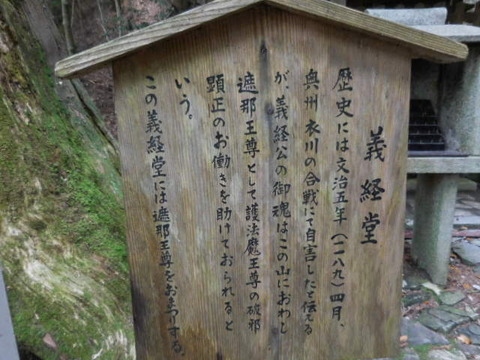 義経堂
歴史には文治五年(一一八九)四月、
奥州 衣川の合戦にて自害したと伝える
が、義経公の御魂はこの山におわし
遮那王尊として護法魔王尊の破邪
顕正のお働きを助けておられると
いう。
この義経堂には遮那王尊をおまつりする。